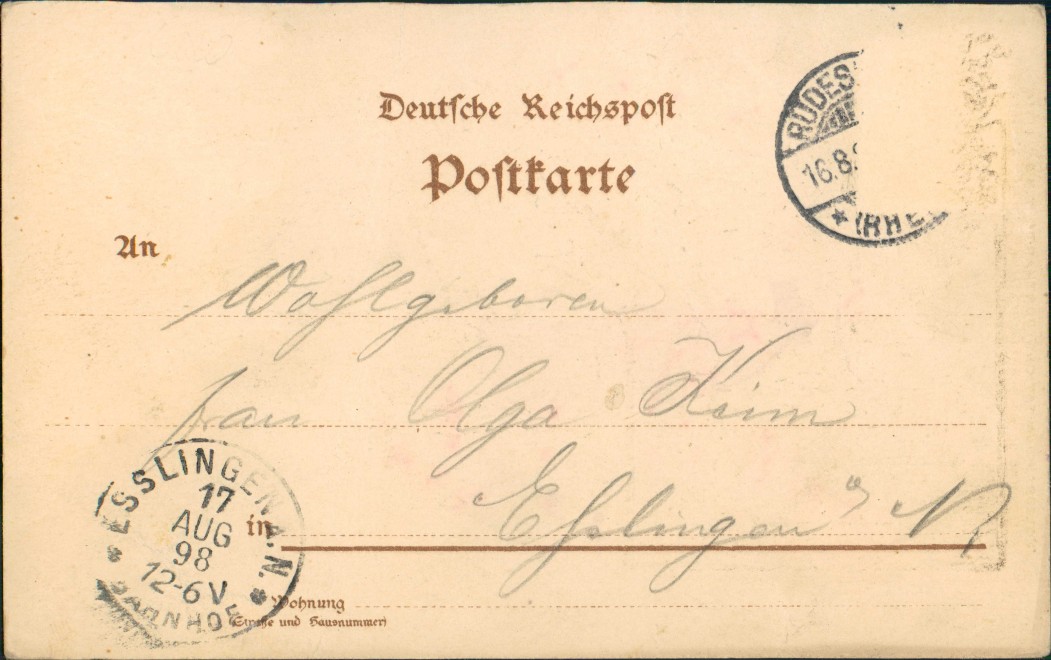 Deutsche Reichspost
Postkarte
RÜDES
16.8.
* (RHE
An
Wohlgeboren
Frau Olga Keim
Eßlingen a N
in
ESSLINGEN A.N.
17
AUG
98
12-6V
* BAHNHOF *
Wohnung
(Straße und Hausnummer)